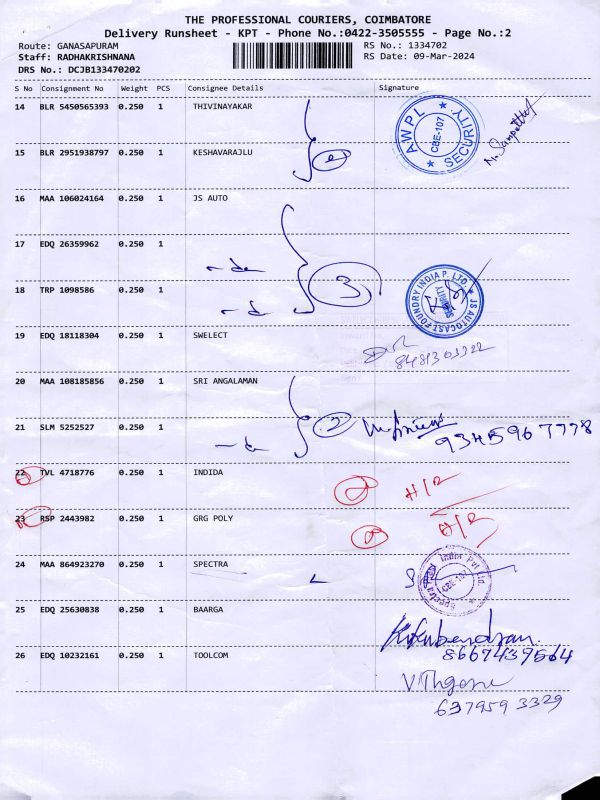 THE PROFESSIONAL COURIERS, COIMBATORE
Delivery Runsheet - KPT - Phone No.:0422-3505555 - Page No.:2
Route: GANASAPURAM
RS No.: 1334702
Staff: RADHAKRISHNANA
RS Date: 09-Mar-2024
DRS No.: DCJB133470202
S No Consignment No Weight PCS Consignee Details Signature
14 BLR 5450565393 0.250 1 THIVINAYAKAR
AWPL SECURITY CBE-107
15 BLR 2951938797 0.250 1 KESHAVARAJLU
16 MAA 106024164 0.250 1 JS AUTO
17 EDQ 26359962 0.250 1
3
18 TRP 1098586 0.250 1
JS AUTOCAST FOUNDRY INDIA P. LTD. SECURITY
19 EDQ 18118304 0.250 1 SWELECT
20 MAA 108185856 0.250 1 SRI ANGALAMAN
21 SLM 5252527 0.250 1
2
9345967778
22 TVL 4718776 0.250 1 INDIDA
23 RSP 2443982 0.250 1 GRG POLY
24 MAA 864923270 0.250 1 SPECTRA
25 EDQ 25630838 0.250 1 BAARGA
8667439564
26 EDQ 10232161 0.250 1 TOOLCOM
637959 3329